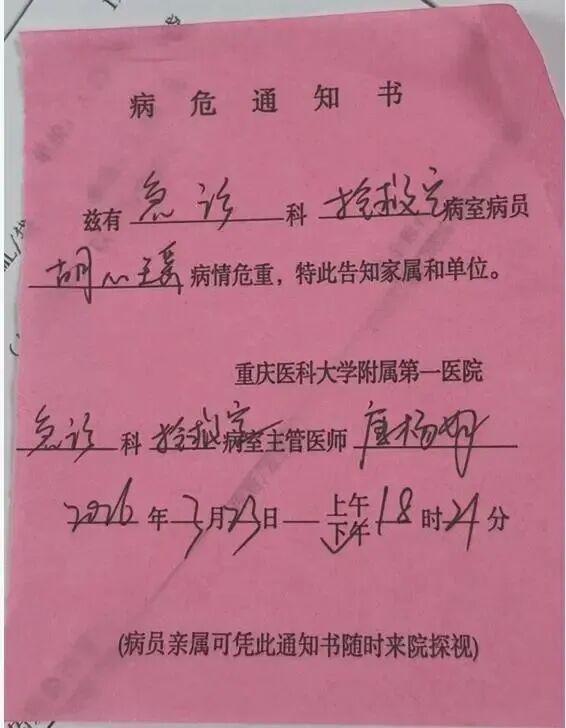 病危通知书
兹有 急诊 科 抢救室 病室病员
胡心瑶 病情危重，特此告知家属和单位。
重庆医科大学附属第一医院
急诊 科 抢救室 病室主管医师
2026 年 3 月 23 日 上午
下午 18 时 24 分
(病员亲属可凭此通知书随时来院探视)